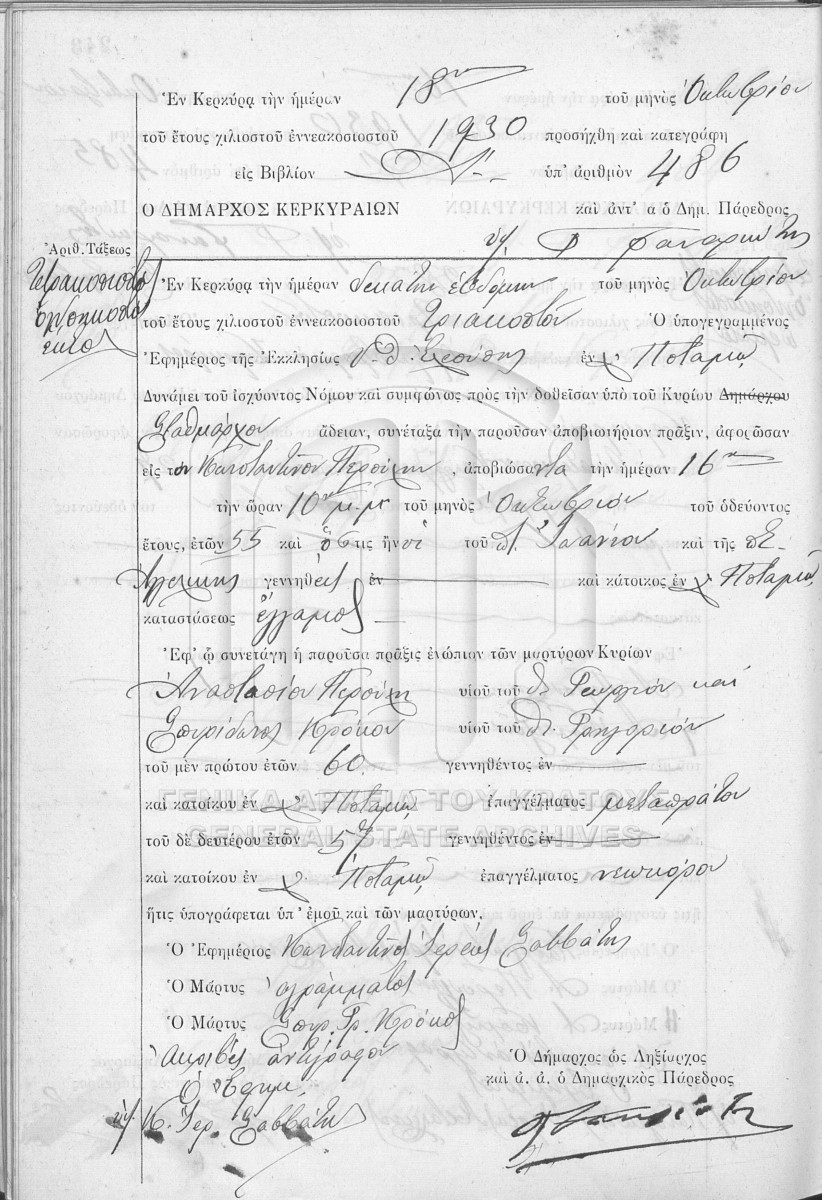 Ἐν Κερκύρᾳ τὴν ἡμέραν 18ην τοῦ μηνὸς Ὀκτωβρίου
τοῦ ἔτους χιλιοστοῦ ἐννεακοσιοστοῦ 1930 προσήχθη καὶ κατεγράφη
εἰς Βιβλίον ὑπ' ἀριθμὸν 486
Ο ΔΗΜΑΡΧΟΣ ΚΕΡΚΥΡΑΙΩΝ καὶ ἀντ' α ὁ Δημ. Πάρεδρος
Ἀριθ. Τάξεως
Τετρακοσιοστὸς
ὀγδοηκοστὸς
ἕκτος
Ἐν Κερκύρᾳ τὴν ἡμέραν δεκάτην ἑβδόμην τοῦ μηνὸς Ὀκτωβρίου
τοῦ ἔτους χιλιοστοῦ ἐννεακοσιοστοῦ Τριακοστοῦ Ὁ ὑπογεγραμμένος
Ἐφημέριος τῆς Ἐκκλησίας ἐν χ. Ποταμῷ
Δυνάμει τοῦ ἰσχύοντος Νόμου καὶ συμφώνως πρὸς τὴν δοθεῖσαν ὑπὸ τοῦ Κυρίου Δημάρχου
Σταθμάρχου ἄδειαν, συνέταξα τὴν παροῦσαν ἀποβιωτήριον πρᾶξιν, ἀφορῶσαν
εἰς τὸν Κωνσταντῖνον Περούλη, ἀποβιώσαντα τὴν ἡμέραν 16ην
τὴν ὥραν 10ην μ.μ. τοῦ μηνὸς Ὀκτωβρίου τοῦ ὁδεύοντος
ἔτους, ἐτῶν 55 καὶ ὅστις ἦν τοῦ π. Ἰωάννου καὶ τῆς
Ἀγγελικῆς γεννηθεὶς ἐν καὶ κάτοικος ἐν χ. Ποταμῷ,
καταστάσεως ἔγγαμος
Ἐφ' ᾧ συνετάγη ἡ παροῦσα πρᾶξις ἐνώπιον τῶν μαρτύρων Κυρίων
Ἀναστασίου Περούλη υἱοῦ τοῦ π. Γεωργίου καὶ
Σπυρίδωνος Κρόκου υἱοῦ τοῦ π. Γρηγορίου
τοῦ μὲν πρώτου ἐτῶν 60 γεννηθέντος ἐν
καὶ κατοίκου ἐν χ. Ποταμῷ, ἐπαγγέλματος μεταπράτου
ΓΕΝΙΚΑ ΑΡΧΕΙΑ ΤΟΥ ΚΡΑΤΟΥΣ
GENERAL STATE ARCHIVES
τοῦ δὲ δευτέρου ἐτῶν γεννηθέντος ἐν
καὶ κατοίκου ἐν χ. Ποταμῷ, ἐπαγγέλματος νεωκόρου
ἥτις ὑπογράφεται ὑπ' ἐμοῦ καὶ τῶν μαρτύρων.
Ὁ Ἐφημέριος Κωνσταντῖνος Ἱερεὺς Σαββάτης
Ὁ Μάρτυς ἀγράμματος
Ὁ Μάρτυς Σπυρ. Γρ. Κρόκος
Ἀκριβὲς ἀντίγραφον
Ὁ Ἐφημ.
Κ. Ἱερ. Σαββάτης
Ὁ Δήμαρχος ὡς Ληξίαρχος
καὶ ἀ. ἀ. ὁ Δημαρχικὸς Πάρεδρος